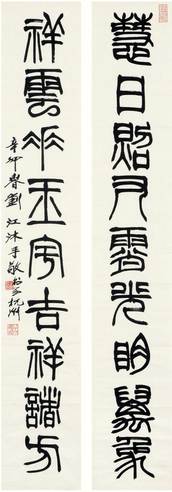 慧日照九霄光明萬象
祥雲玉宇吉祥諸方
辛卯春劉江沐手敬書于杭州